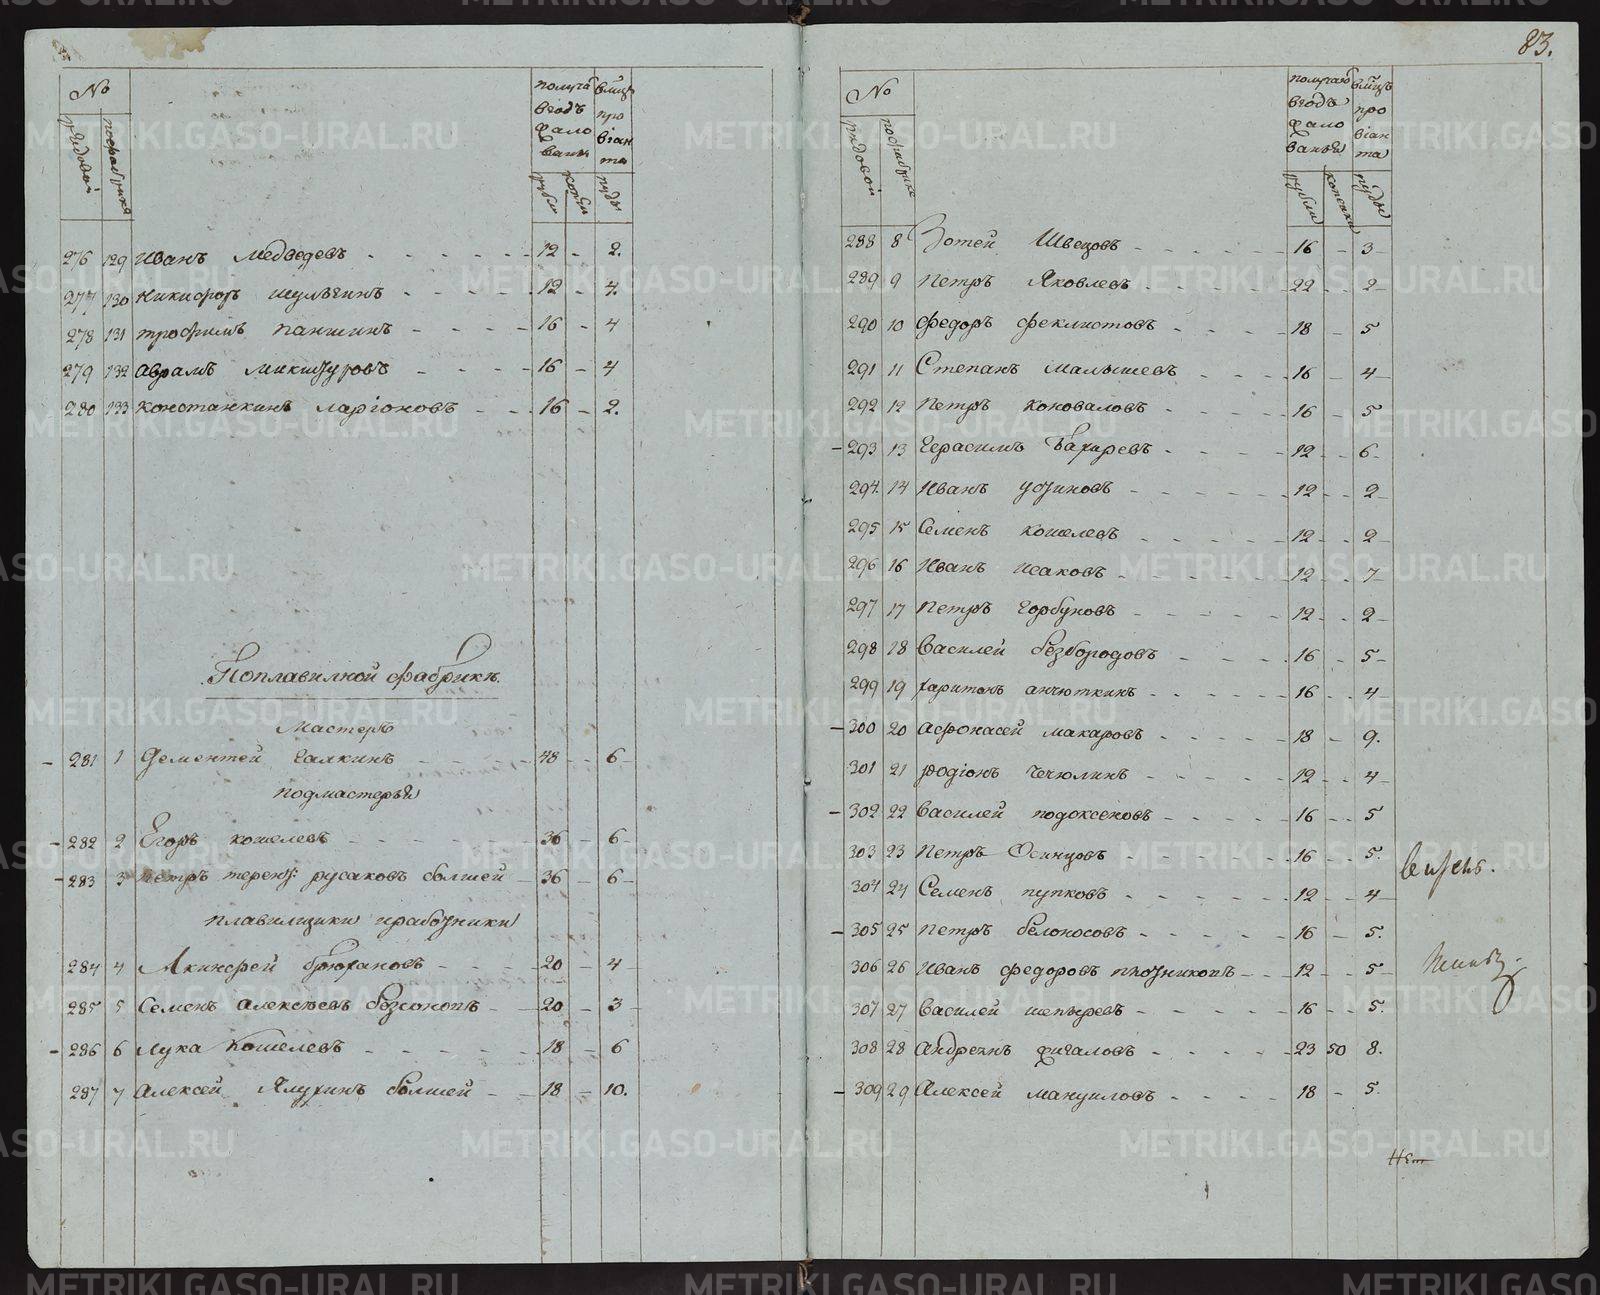 №
рядовой
пофабрике
получа
вгодъ
жало
ванья
рубли
копѣи
вмцъ
про
віан
та
пуды
276 129 Иванъ Медведевъ 12 - 2.
277 130 Никифоръ шулъгинъ 12 - 4.
278 131 трофимъ паншинъ 16 - 4
279 132 аврамъ микшуровъ 16 - 4
280 133 константинъ ларіоновъ 16 - 2.
Поплавилной фабрикѣ
Мастеръ
- 281 1 Дементей Галкинъ 48 - 6
подмастерья
- 282 2 Егоръ кошелевъ 36 - 6
- 283 3 петръ терент: русаковъ болшей 36 - 6
плавилщики иработники
284 4 Акинфей брюхановъ 20 - 4
285 5 Семенъ алексѣевъ безсоновъ 20 - 3
- 286 6 лука Кошелевъ 18 - 6
287 7 алексей Ялухинъ болшей 18 - 10.
83.
№
рядовой
пофабрике
получаю
вгодъ
жало
ванья
рубли
копеики
вмцъ
про
віан
та
пуды
288 8 Зотей Швецовъ 16 - 3
289 9 Петръ Яковлевъ 22 - 2
290 10 федоръ феклистовъ 18 - 5
291 11 Степанъ малышевъ 16 - 4
292 12 Петръ коноваловъ 16 - 5
- 293 13 Герасимъ бахиревъ 12 - 6
294 14 Иванъ устиновъ 12 - 2
295 15 Семенъ кошелевъ 12 - 2
296 16 Иванъ исаковъ 12 - 7
297 17 Петръ Горбуновъ 12 - 2
298 18 Василей безбородовъ 16 - 5
299 19 харитонъ анчюткинъ 16 - 4
- 300 20 афонасей макаровъ 18 - 9.
301 21 родіонъ чечюлинъ 12 - 4
- 302 22 василей подоксеновъ 16 - 5
303 23 Петръ Осинцовъ 16 - 5.
304 24 Семенъ пупковъ 12 - 4
- 305 25 Петръ белоносовъ 16 - 5.
306 26 Иванъ федоровъ плотниковъ 12 - 5
307 27 Василей шепыревъ 16 - 5.
308 28 андреянъ жигаловъ 23 50 8.
- 309 29 алексей мануиловъ 18 - 5.
METRIKI.GASO-URAL.RU